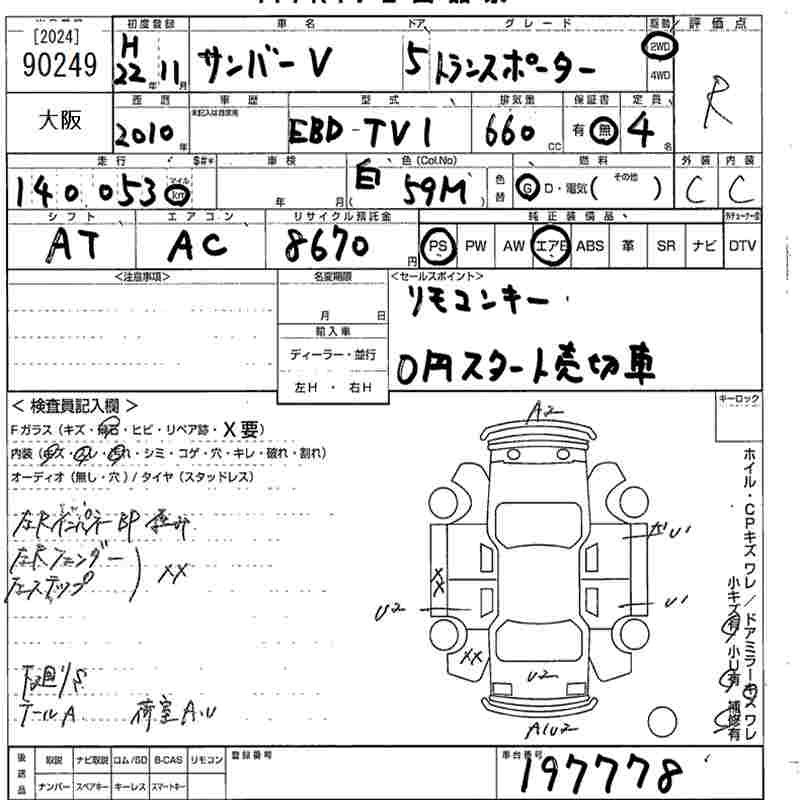 [2024]
90249
大阪
初度登録 車名 ドア グレード 駆動 評価点
H 22年 11月 サンバーV 5 トランスポーター 2WD 4WD R
西暦 車歴 型式 排気量 保証書 定員
2010年 未記入は自家用 EBD-TV1 660 CC 有・無 4名
走行 $#* 車検 色(Col.No) 燃料 外装 内装
140053 マイル km 年 月 白 59M 色替 G D・電気( その他 ) C C
シフト エアコン リサイクル預託金 純正装備品 外チューナー含
AT AC 8670円 PS PW AW エアB ABS 革 SR ナビ DTV
<注意事項> 名変期限 <セールスポイント>
月 日 リモコンキー
輸入車
ディーラー・並行 0円スタート売切車
左H・右H
<検査員記入欄> キーロック
Fガラス(キズ・飛石・ヒビ・リペア跡・X要)
内装(キズ・スレ・汚れ・シミ・コゲ・穴・キレ・破れ・割れ)
オーディオ(無し・穴)/タイヤ(スタッドレス)
左Rフェンダー
左ステップ
XX
下廻り S
テールA 荷室A.U
A2
U1
XX
U2 U1
XX
U2
A1U2
ホイル・CPキズ ワレ/ドアミラーキズ ワレ
小キズ有 小U有 補修有
後送品 取説 ナビ取説 ロム/SD B-CAS リモコン 登録番号 車台番号
ナンバー スペアキー キーレス スマートキー 197778